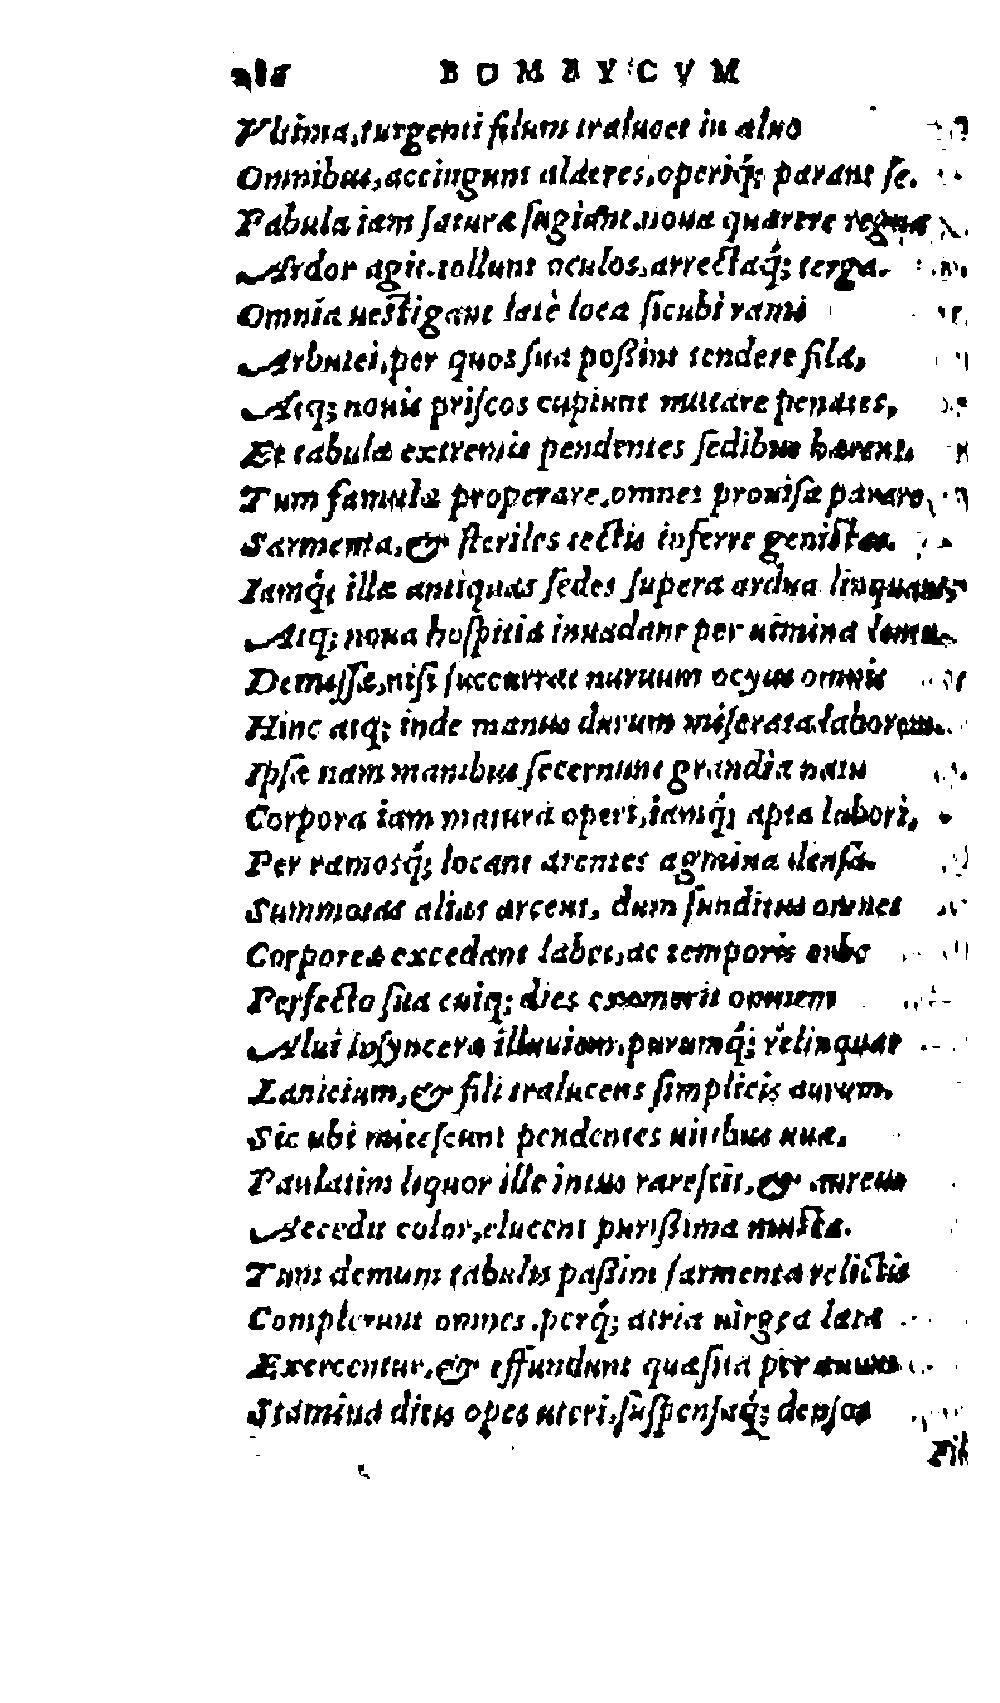 BOMBYCVM
Vltima, turgenti filum tralucet in aluo
Omnibus, accingunt alacres, operiq́; parant se.
Pabula iam saturæ fugiunt. noua quærere regna
Ardor agit. tollunt oculos, arrectaq́; terga.
Omnía uestigant latè loca sicubi rami
Arbutei, per quos sua possint tendere fila,
Atq; nouis priscos cupiunt mutare penates,
Et tabulæ extremis pendentes sedibus hærent.
Tum famulæ properare, omnes prouisa parare,
Sarmenta, & steriles tectis inferre genistas.
Iamq́; illæ antiquas sedes supera ardua linquunt,
Atq; noua hospitia inuadunt per uimina
Demissæ, nisi succurrat nuruum ocyus omnis
Hinc atq; inde manus durum miserata laborem.
Ipsæ nam manibus secernunt grandia natu
Corpora iam matura operi, iamq́; apta labori,
Per ramosq́; locant arentes agmina densa.
Summotas alias arcent, dum funditus omnes
Corporea excedant labes, ac temporis orbe
Perfecto sua cuiq; dies exemerit omnem
Alui insyncera illuuiem, purumq́; relinquat
Lanicium, & fili tralucens simplicis aurum.
Sic ubi mitescunt pendentes uitibus uuæ,
Paulatim liquor ille intus rarescit, & aureus
Accedit color, elucent purissima musta.
Tum demum tabulis passim sarmenta relictis
Complerunt omnes. perq́; atria uirgea lata
Exercentur, & effundunt quæsita per annos
Stamina ditis opes uteri, suspensaq́; densos
Fil